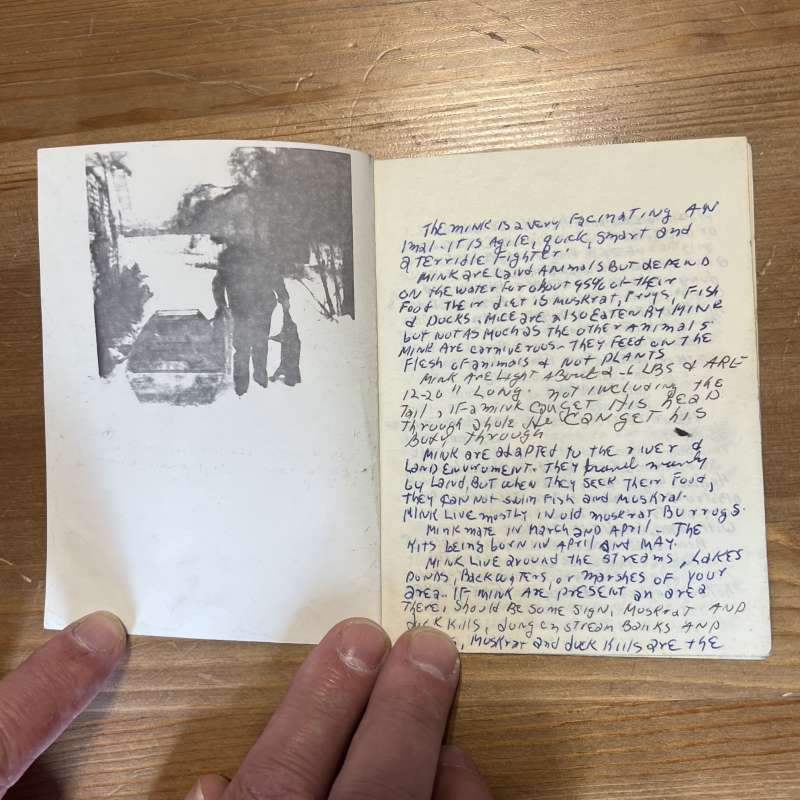 The mink is a very Facinating An
imal. it is Agile, quick, smart and
a terrible Fighter.
Mink are Land Animals But depEND
ON the water For about 95% of their
Food Their diet is muskrat, Frogs, Fish
& Ducks. Mice are also EatEN By MINK
but Not as Much as the other Animals
Mink Are carniverous. They FeeD on the
Flesh of animals & Not PLANTS
Mink Are Light About 2-6 LBS & ARE
12-20" Long. not including the
Tail, if a mink can get His head
Through a hole He can get his
Body through
Mink are adapted to the river &
Land Enviroment. They travel mainly
by Land, But when They seek Their Food,
they can Not swim Fish and Muskrat.
Mink Live mostly in old muskrat Burrogs.
Mink mate in March AND April. The
Kits being born in April and MAY.
Mink Live around the streams, LAKES
Ponds, Backwaters, or marshes of your
area.. IF mink are present an area
There, should Be some sign, Muskrat AND
duck Kills, dung on stream Banks AND
Muskrat and duck Kills are the